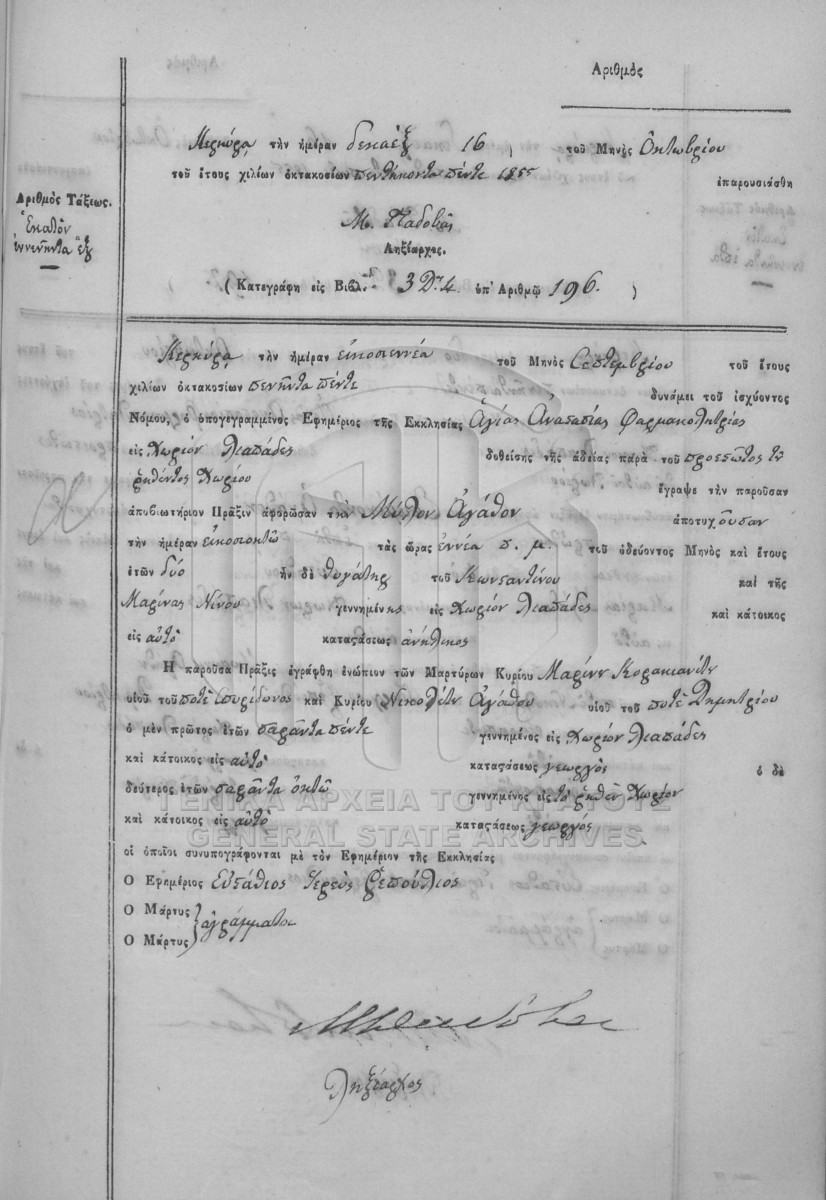 Ἀριθμὸς
Κερκύρᾳ τὴν ἡμέραν δεκαὲξ 16 τοῦ Μηνὸς Ὀκτωβρίου
τοῦ ἔτους χιλίων ὀκτακοσίων πεντήκοντα πέντε 1855 ἐπαρουσιάσθη
Ἀριθμὸς Τάξεως.
Ἑκατὸν
ἐννενῆντα ἓξ
Μ. Παδοβᾶς
Ληξίαρχος.
( Κατεγράφη εἰς Βιβλ. 3 ὑπ' Ἀριθμῷ 196. )
Κερκύρᾳ τὴν ἡμέραν εἰκοσιεννέα τοῦ Μηνὸς Σεπτεμβρίου τοῦ ἔτους
χιλίων ὀκτακοσίων πενῆντα πέντε δυνάμει τοῦ ἰσχύοντος
Νόμου, ὁ ὑπογεγραμμένος Ἐφημέριος τῆς Ἐκκλησίας Ἁγίας Ἀναστασίας Φαρμακολητρίας
εἰς Χωρίον Λιαπάδες δοθείσης τῆς ἀδείας παρὰ τοῦ προεστῶτος τοῦ
ῥηθέντος Χωρίου ἔγραψε τὴν παροῦσαν
ἀποβιωτήριον Πρᾶξιν ἀφορῶσαν τὴν Ἀγάθου ἀποτυχοῦσαν
τὴν ἡμέραν εἰκοσιοκτὼ τὰς ὥρας ἐννέα π. μ. τοῦ ὁδεύοντος Μηνὸς καὶ ἔτους
ἐτῶν δύο ἦν δὲ θυγάτηρ τοῦ Κωνσταντίνου καὶ τῆς
Μαρίνας γεννημένης εἰς Χωρίον Λιαπάδες καὶ κάτοικος
εἰς αὐτὸ καταστάσεως ἀνήλικος
Ἡ παροῦσα Πρᾶξις ἐγράφθη ἐνώπιον τῶν Μαρτύρων Κυρίου Μαρίνου Κορακιανίτου
υἱοῦ τοῦ ποτὲ Σπυρίδωνος καὶ Κυρίου Νικολέτου Ἀγάθου υἱοῦ τοῦ ποτὲ Δημητρίου
ὁ μὲν πρῶτος ἐτῶν σαράντα πέντε γεννημένος εἰς Χωρίον Λιαπάδες
καὶ κάτοικος εἰς αὐτὸ καταστάσεως γεωργὸς ὁ δὲ
δεύτερος ἐτῶν σαράντα ὀκτὼ γεννημένος εἰς τὸ ῥηθὲν Χωρίον
καὶ κάτοικος εἰς αὐτὸ καταστάσεως γεωργὸς
οἱ ὁποῖοι συνυπογράφονται μὲ τὸν Ἐφημέριον τῆς Ἐκκλησίας
Ὁ Ἐφημέριος Εὐστάθιος Ἱερεὺς Ρεπούλιος
Ὁ Μάρτυς } ἀγράμματοι
Ὁ Μάρτυς
Ληξίαρχος
ΓΕΝΙΚΑ ΑΡΧΕΙΑ ΤΟΥ ΚΡΑΤΟΥΣ
GENERAL STATE ARCHIVES